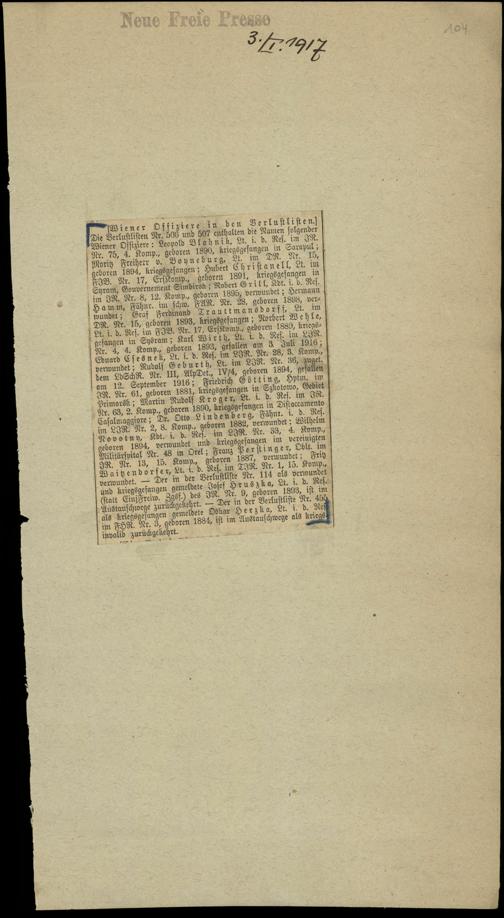 Neue Freie Presse
3. I. 1917
104
[Wiener Offiziere in den Verlustlisten.]
Die Verlustlisten Nr. 506 und 507 enthalten die Namen folgender
Wiener Offiziere: Leopold Blahnik, Lt. i. d. Res. im JR.
Nr. 75, 4. Komp., geboren 1890, kriegsgefangen in Sarapul;
Moritz Freiherr v. Boyneburg, Lt. im DR. Nr. 15,
geboren 1894, kriegsgefangen; Hubert Christanell, Lt. im
FJB. Nr. 17, ErsKomp., geboren 1891, kriegsgefangen in
Sysran, Gouvernement Simbirsk; Robert Grill, Kdt. i. d. Res.
im JR. Nr. 8, 12. Komp., geboren 1895, verwundet; Hermann
Hamm, Fähnr. im schw. FAR. Nr. 28, geboren 1898, ver-
wundet; Graf Ferdinand Trauttmansdorff, Lt. im
DR. Nr. 15, geboren 1893, kriegsgefangen; Norbert Wehle,
Lt. i. d. Res. im FJB. Nr. 17, ErsKomp., geboren 1889, kriegs-
gefangen in Sysran; Karl Wirth, Lt. i. d. Res. im LJR.
Nr. 4, 4. Komp., geboren 1893, gefallen am 3. Juli 1916;
Eduard Cfesnek, Lt. i. d. Res. im LJR. Nr. 28, 3. Komp.,
verwundet; Rudolf Geburth, Lt. im LJR. Nr. 36, zuget.
dem LdSchR. Nr. III, AlpDet., IV/4, geboren 1894, gefallen
am 12. September 1916; Friedrich Götting, Hptm. im
JR. Nr. 61, geboren 1881, kriegsgefangen in Szkotowo, Gebiet
Primorsk; Martin Rudolf Kroger, Lt. i. d. Res. im JR.
Nr. 63, 2. Komp., geboren 1890, kriegsgefangen in Distaccamento
Casalmaggiore; Dr. Otto Lindenberg, Fähnr. i. d. Res.
im LJR. Nr. 2, 8. Komp., geboren 1882, verwundet; Wilhelm
Novotny, Kdt. i. d. Res. im LJR. Nr. 33, 4. Komp.,
geboren 1894, verwundet und kriegsgefangen im vereinigten
Militärspital Nr. 48 in Orel; Franz Perstinger, Oblt. im
JR. Nr. 13, 15. Komp., geboren 1887, verwundet; Fritz
Waitzendorfer, Lt. i. d. Res. im DJR. Nr. 1, 15. Komp.,
verwundet. — Der in der Verlustliste Nr. 114 als verwundet
und kriegsgefangen gemeldete Josef Hruszka, Lt. i. d. Res.
(statt EinjFreiw. Zgsf.) des JR. Nr. 9, geboren 1893, ist im
Austauschwege zurückgekehrt. — Der in der Verlustliste Nr.
als kriegsgefangen gemeldete Oskar Herzka, Lt. i. d. Res.
im FHR. Nr. 3, geboren 1884, ist im Austauschwege als kriegs-
invalid zurückgekehrt.